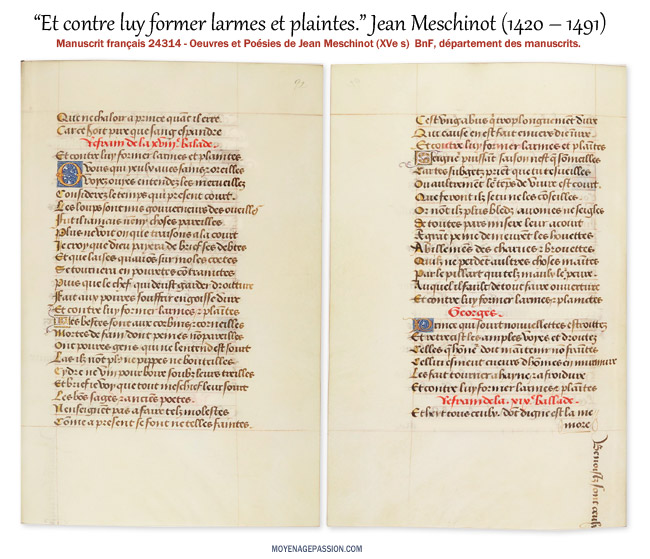 “Et contre luy former larmes et plaintes.” Jean Meschinot (1420 – 1491)
Manuscrit français 24314 - Oeuvres et Poésies de Jean Meschinot (XVe s) BnF, département des manuscrits.
Que nen chaloir a prince quāt il erre
Car ce soit pire que sang espandre
Refrain de la balade.
Et contre luy former larmes et plaintes
O vous qui yeulx aues sains & oreilles
Voyez oyes entendez les merueilles
Considerez le temps qui present court.
Les loups sont mis gouuerneurs des oueilles
Fut il iamais nenny choses pareilles
Plus ne voit on que traisons a la court
Je croy que dieu payera de brief ses debtes
Et que laises quauōs sur moles
Se tournera en pouretes cōtraintes
Puis que le chef qui deust garder droitture
Fait aux poures souffrir engoisse dure
Et contre luy former larmes & plaintes
Les bestes sont aux corbins & cornailles
Mortes de faim dont peines nōpareilles
Ont poures gens qui ne lentend est sourt
Las ilz nont pl' ne pippes ne bouteilles
Cydre ne vin pour boire soubz leurs treilles
Et brief ie voy que tout meschief leur sourt
Les bōs sages & anciēs poetes
Nenseignēt pas a faire telz molestes
Cōme a present se font ne telles faintes
Cest vng abus q trop longuement dure
Que cause en est fait enuers dieu
Et contre luy former larmes et plaintes
Seigne puissāt saison nest q sōmeilles
Car tes subgetz priēt que tu esueilles
Ou aultremēt le tēps de viure est court
Que feront ilz se tu ne les cōseilles
Or nont ilz plus bledz auoines ne seigles
De toutes pars misere leur acourt
A grāt peine demeurēt les houettes
Abillemēs des charues & brouettes
Quilz ne perdēt aultres choses maītes
Par le pillart qui telz maulx
Auquel il fault de tout faire ouuerture
Et contre luy former larmes & plaintes
Georges.
Prince qui sourt nouuellettes
Et retrait les amples voyes et droites
Celles q hōne doit maītenir nō fraītes
Cellui se meut cueurs dhōmes en murmure
Les fait tourner a hayne & a froidure
Et contre luy former larmes & plaītes
Refrain de la xix. ballade.
Et heyt tous ceulx dōt digne est la me
more
MOYENAGEPASSION.COM